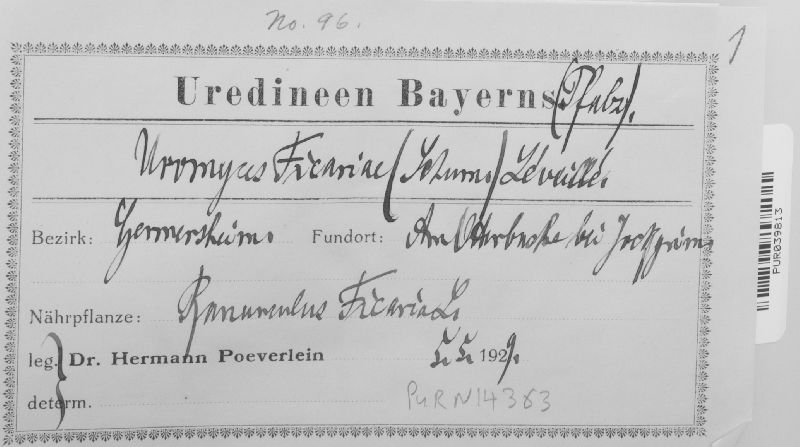 No. 96.
1
Uredineen Bayerns (Pfalz).
Uromyces Ficariae (Schum.) Léveillé.
Bezirk: Germersheim. Fundort: Am Otterbache bei Jockgrim.
Nährpflanze: Ranunculus Ficaria L.
leg. Dr. Hermann Poeverlein 5. 5. 1929.
determ.
PUR N14383
PUR039813